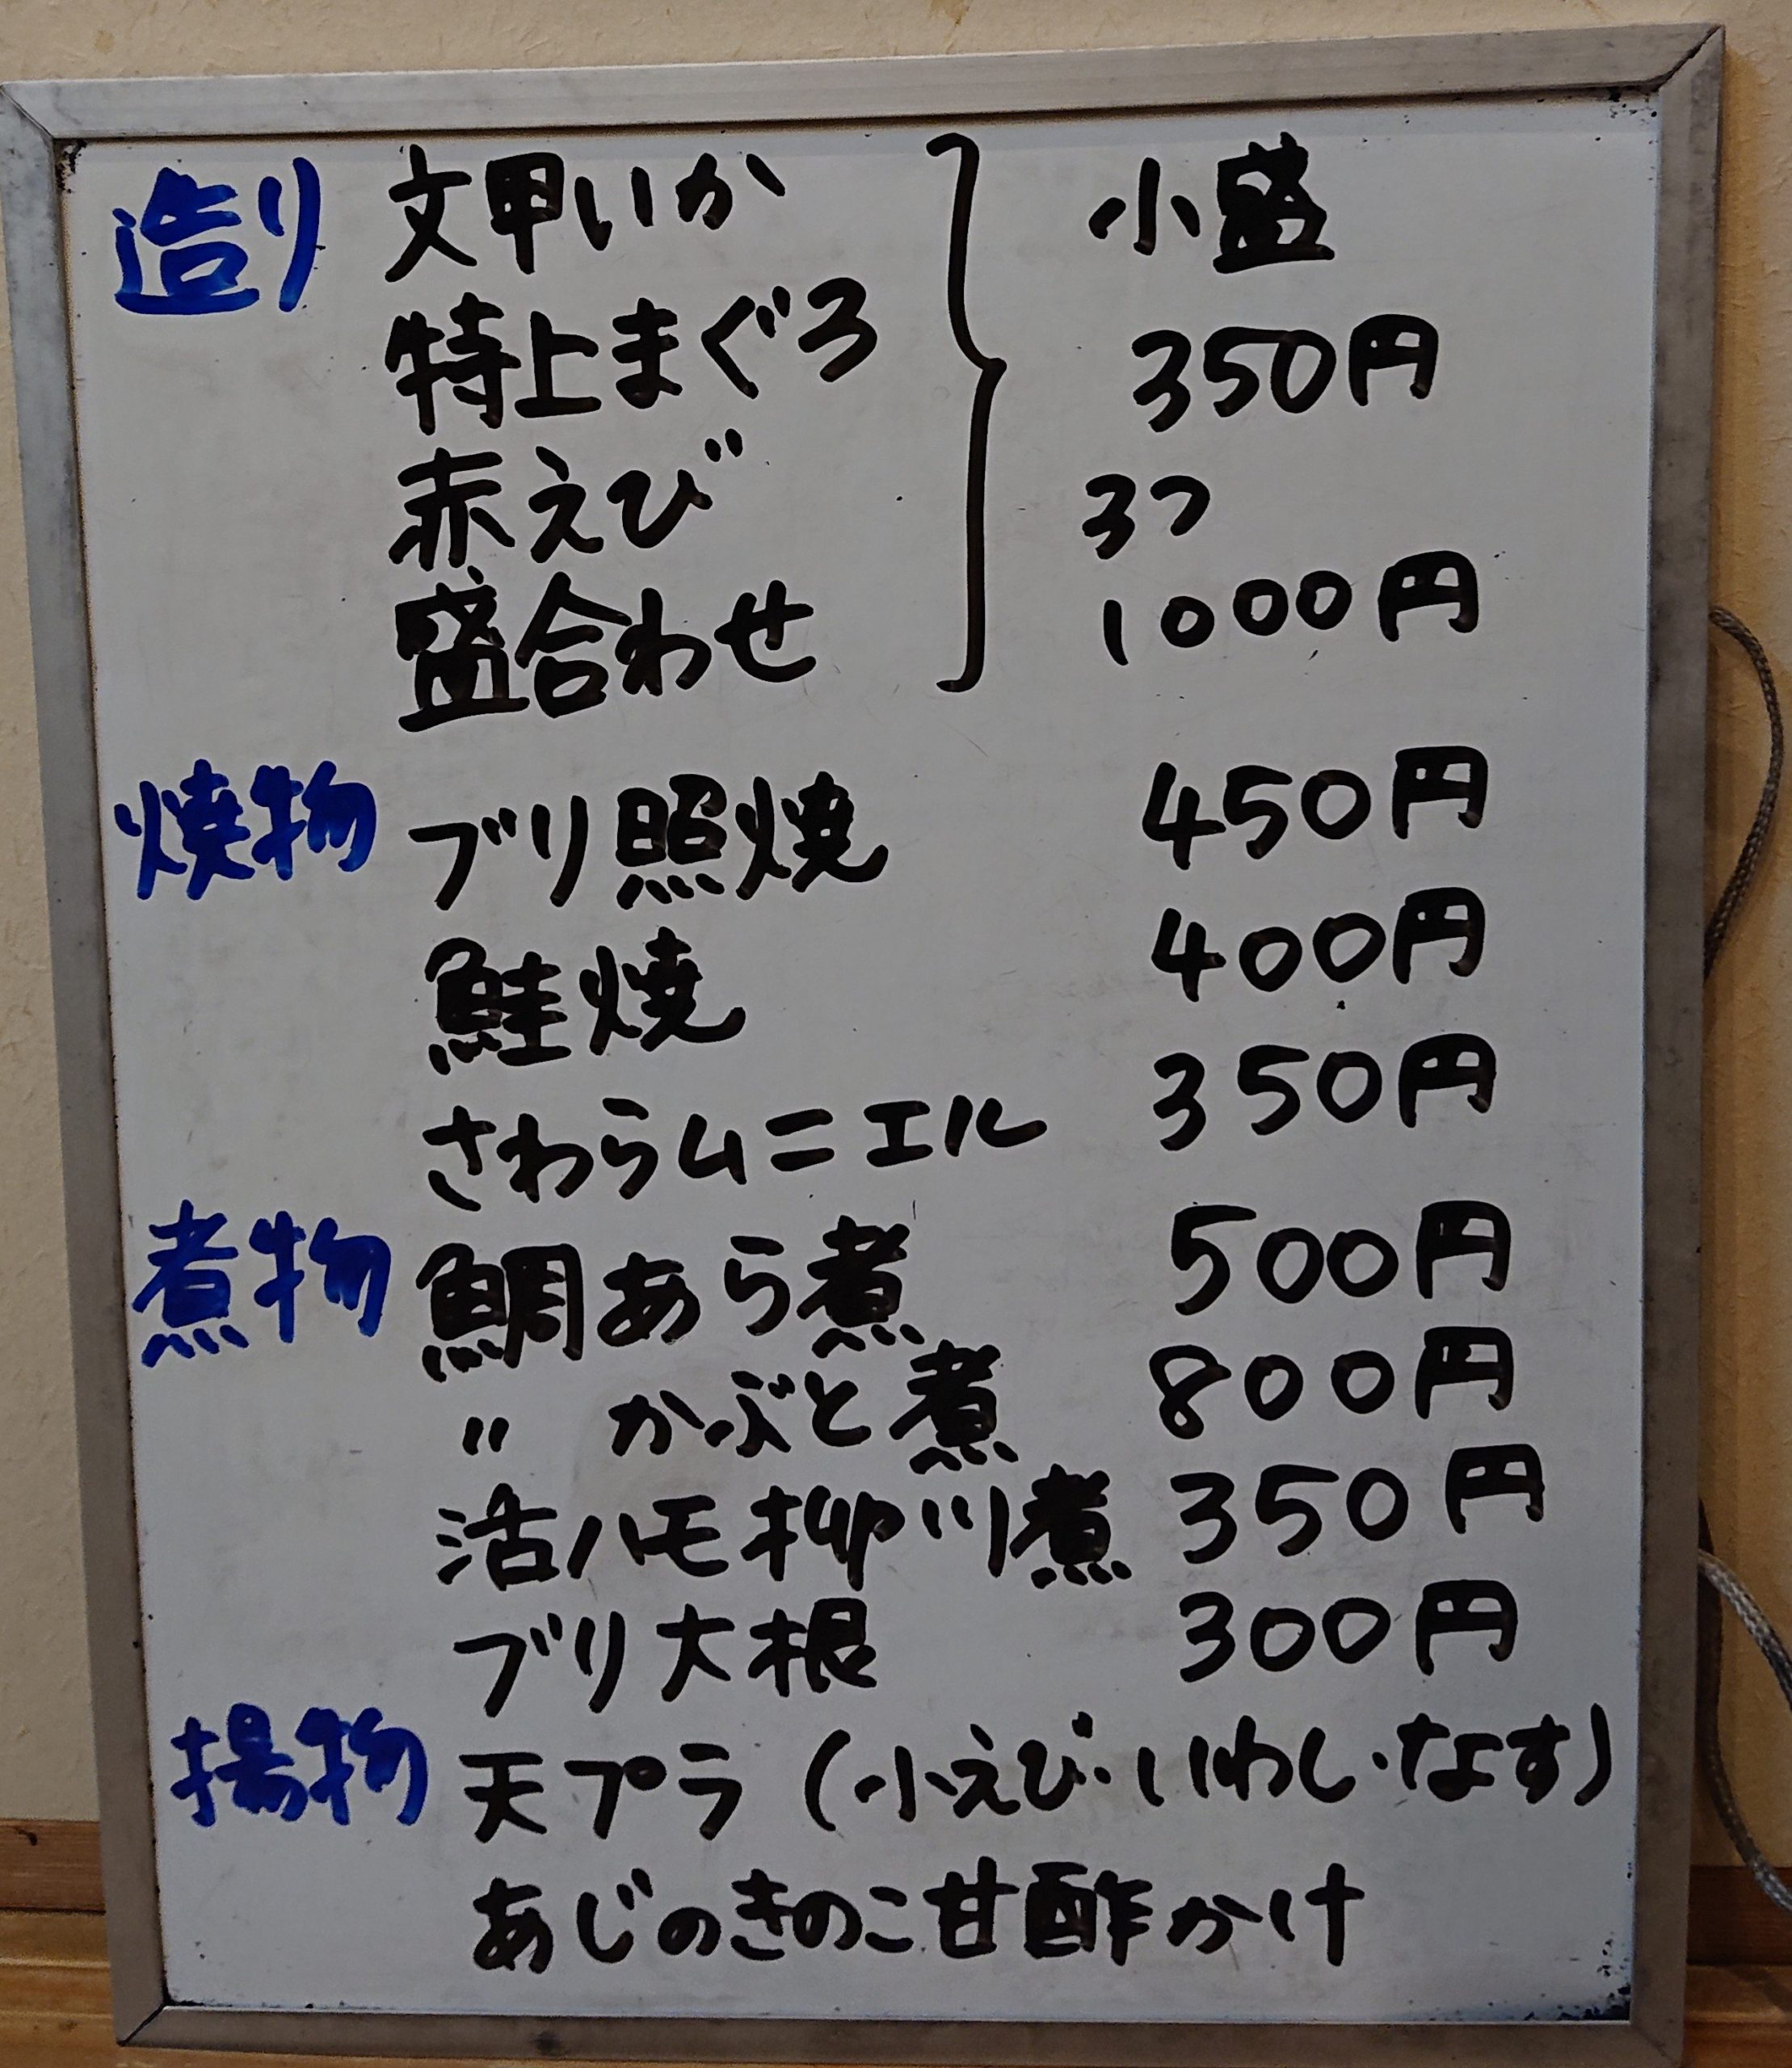 造り 文甲いか 小盛
特上まぐろ 350円
赤えび 3つ
盛合わせ 1000円
焼物 ブリ照焼 450円
鮭焼 400円
さわらムニエル 350円
煮物 鯛あら煮 500円
〃 かぶと煮 800円
活ハモ柳川煮 350円
ブリ大根 300円
揚物 天プラ (小えび・いわし・なす)
あじのきのこ甘酢かけ